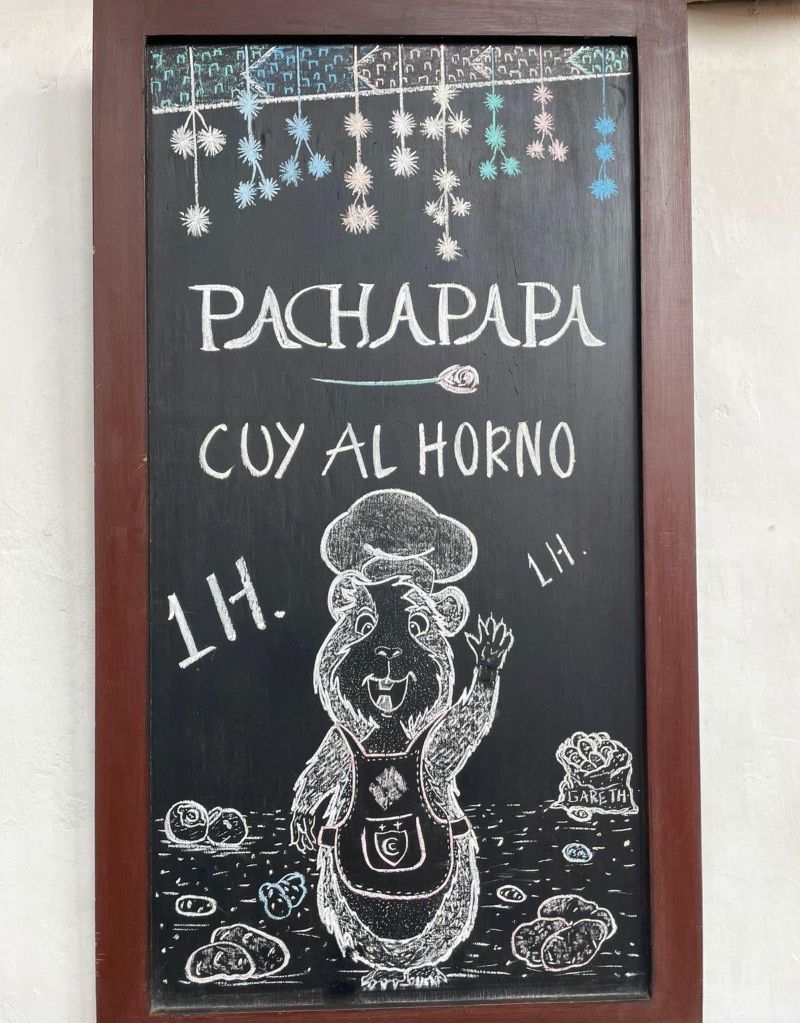 PACHAPAPA
CUY AL HORNO
1 H.
1 H.
GARETH
C